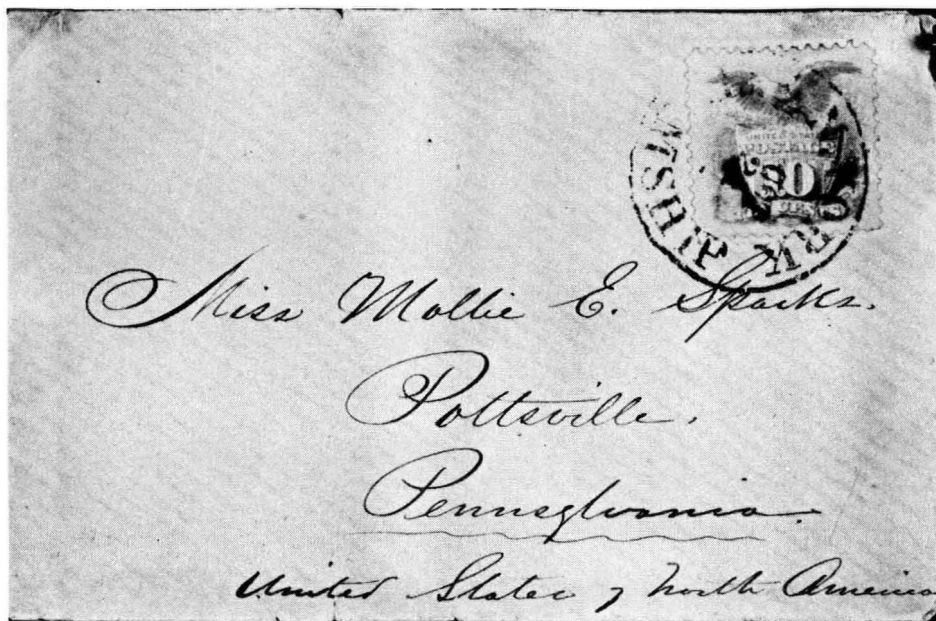 UNITED STATES
POSTAGE
10
CENTS
STEAMSHIP
YORK
Miss Mollie E. Sparks.
Pottsville.
Pennsylvania.
United States of North America